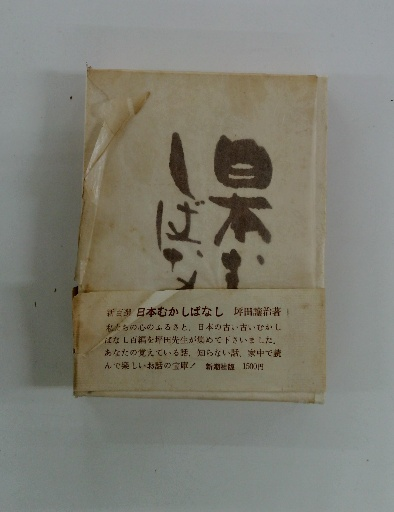 日本む
しばな
新百選 日本むかしばなし 坪田譲治著
私たちの心のふるさと、日本の古い古いむかし
ばなし百編を坪田先生が集めて下さいました。
あなたの覚えている話、知らない話、家中で読
んで楽しいお話の宝庫！ 新潮社版 1500円